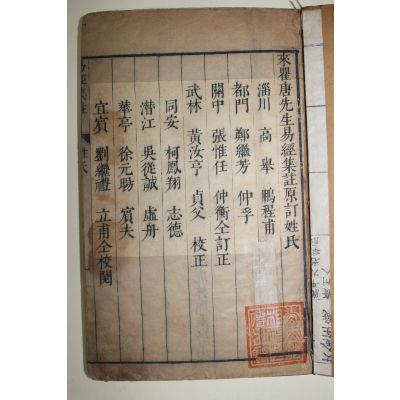 來瞿唐先生易經集註原訂姓氏
淄川 高舉 鵬程甫
都門 鄭繼芳 仲孚
關中 張惟任 仲衡仝訂正
武林 黃汝亨 貞父 校正
同安 柯鳳翔 志德
潛江 吳從誠 虛舟
華亭 徐元暘 賓夫
宜賓 劉繼禮 立甫仝校閱
姓氏